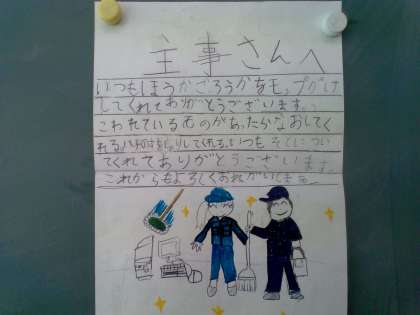 主事さんへ
いつもほうかごろうかをモップがけ
してくれてありがとうございます。
こわれているものがあったらなおしてく
れる いつも
てくれてありがとうございます。
これからもよろしくおねがいします。